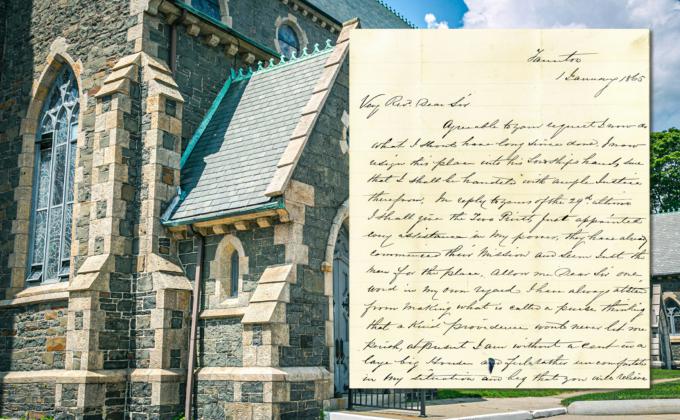 Taunton
1 January 1865
Very Revd. Dear Sir
Agreeable to your request I now do
what I should have long since done, I now
resign this place into his Lordships hands, sure
that I shall be handeled with ample Justice
therefrom. In reply to yours of the 29th ultimo
I shall give the Two Priests just appointed
every assistance in my power, they have already
commenced their Mission and seem Just the
men for the place. Allow me Dear Sir one
word in my own regard I have always
from making what is called a purse thinking
that a Kind Providence would never let me
perish, at present I am without a cent in a
large big and rather
in my situation and beg that you will